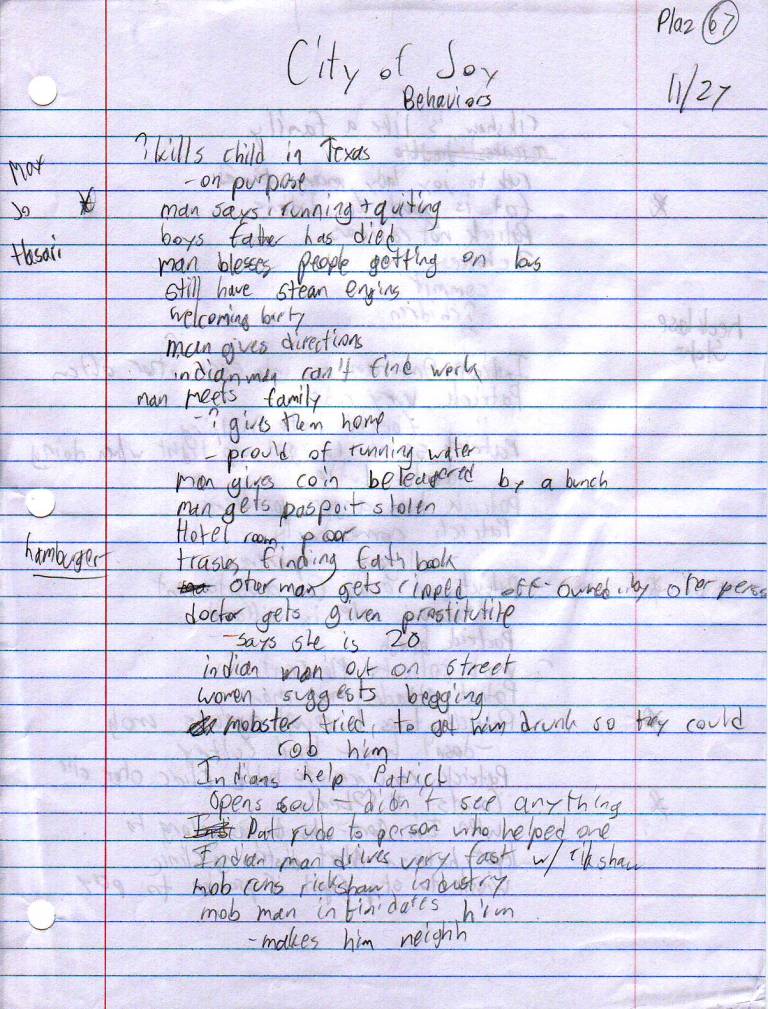 Plaz 67
City of Joy
Behaviors
11/27
? kills child in Texas
- on purpose
Max
Jo
Hasari
man says : running + quiting
boys father has died
man blesses people getting on bus
still have stean engins
welcoming
man gives directions
indian man can't find work
man meets family
- ? gives them home
- prould of running water
man gives coin beleagered by a bunch
man gets pasport stolen
Hotel room poor
hamburger
trashes finding book
other man gets ripped off - owned by other
doctor gets given prostitutite
- says she is 20
indian man out on street
women suggests begging
mobster tried to get him drunk so they could
rob him
Indians help Patrick
Opens didn't see anything
Pat rude to person who helped one
Indian man drives very fast w/ rikshaw
mob runs rickshaw industry
mob man intimidates him
- makes him neighh